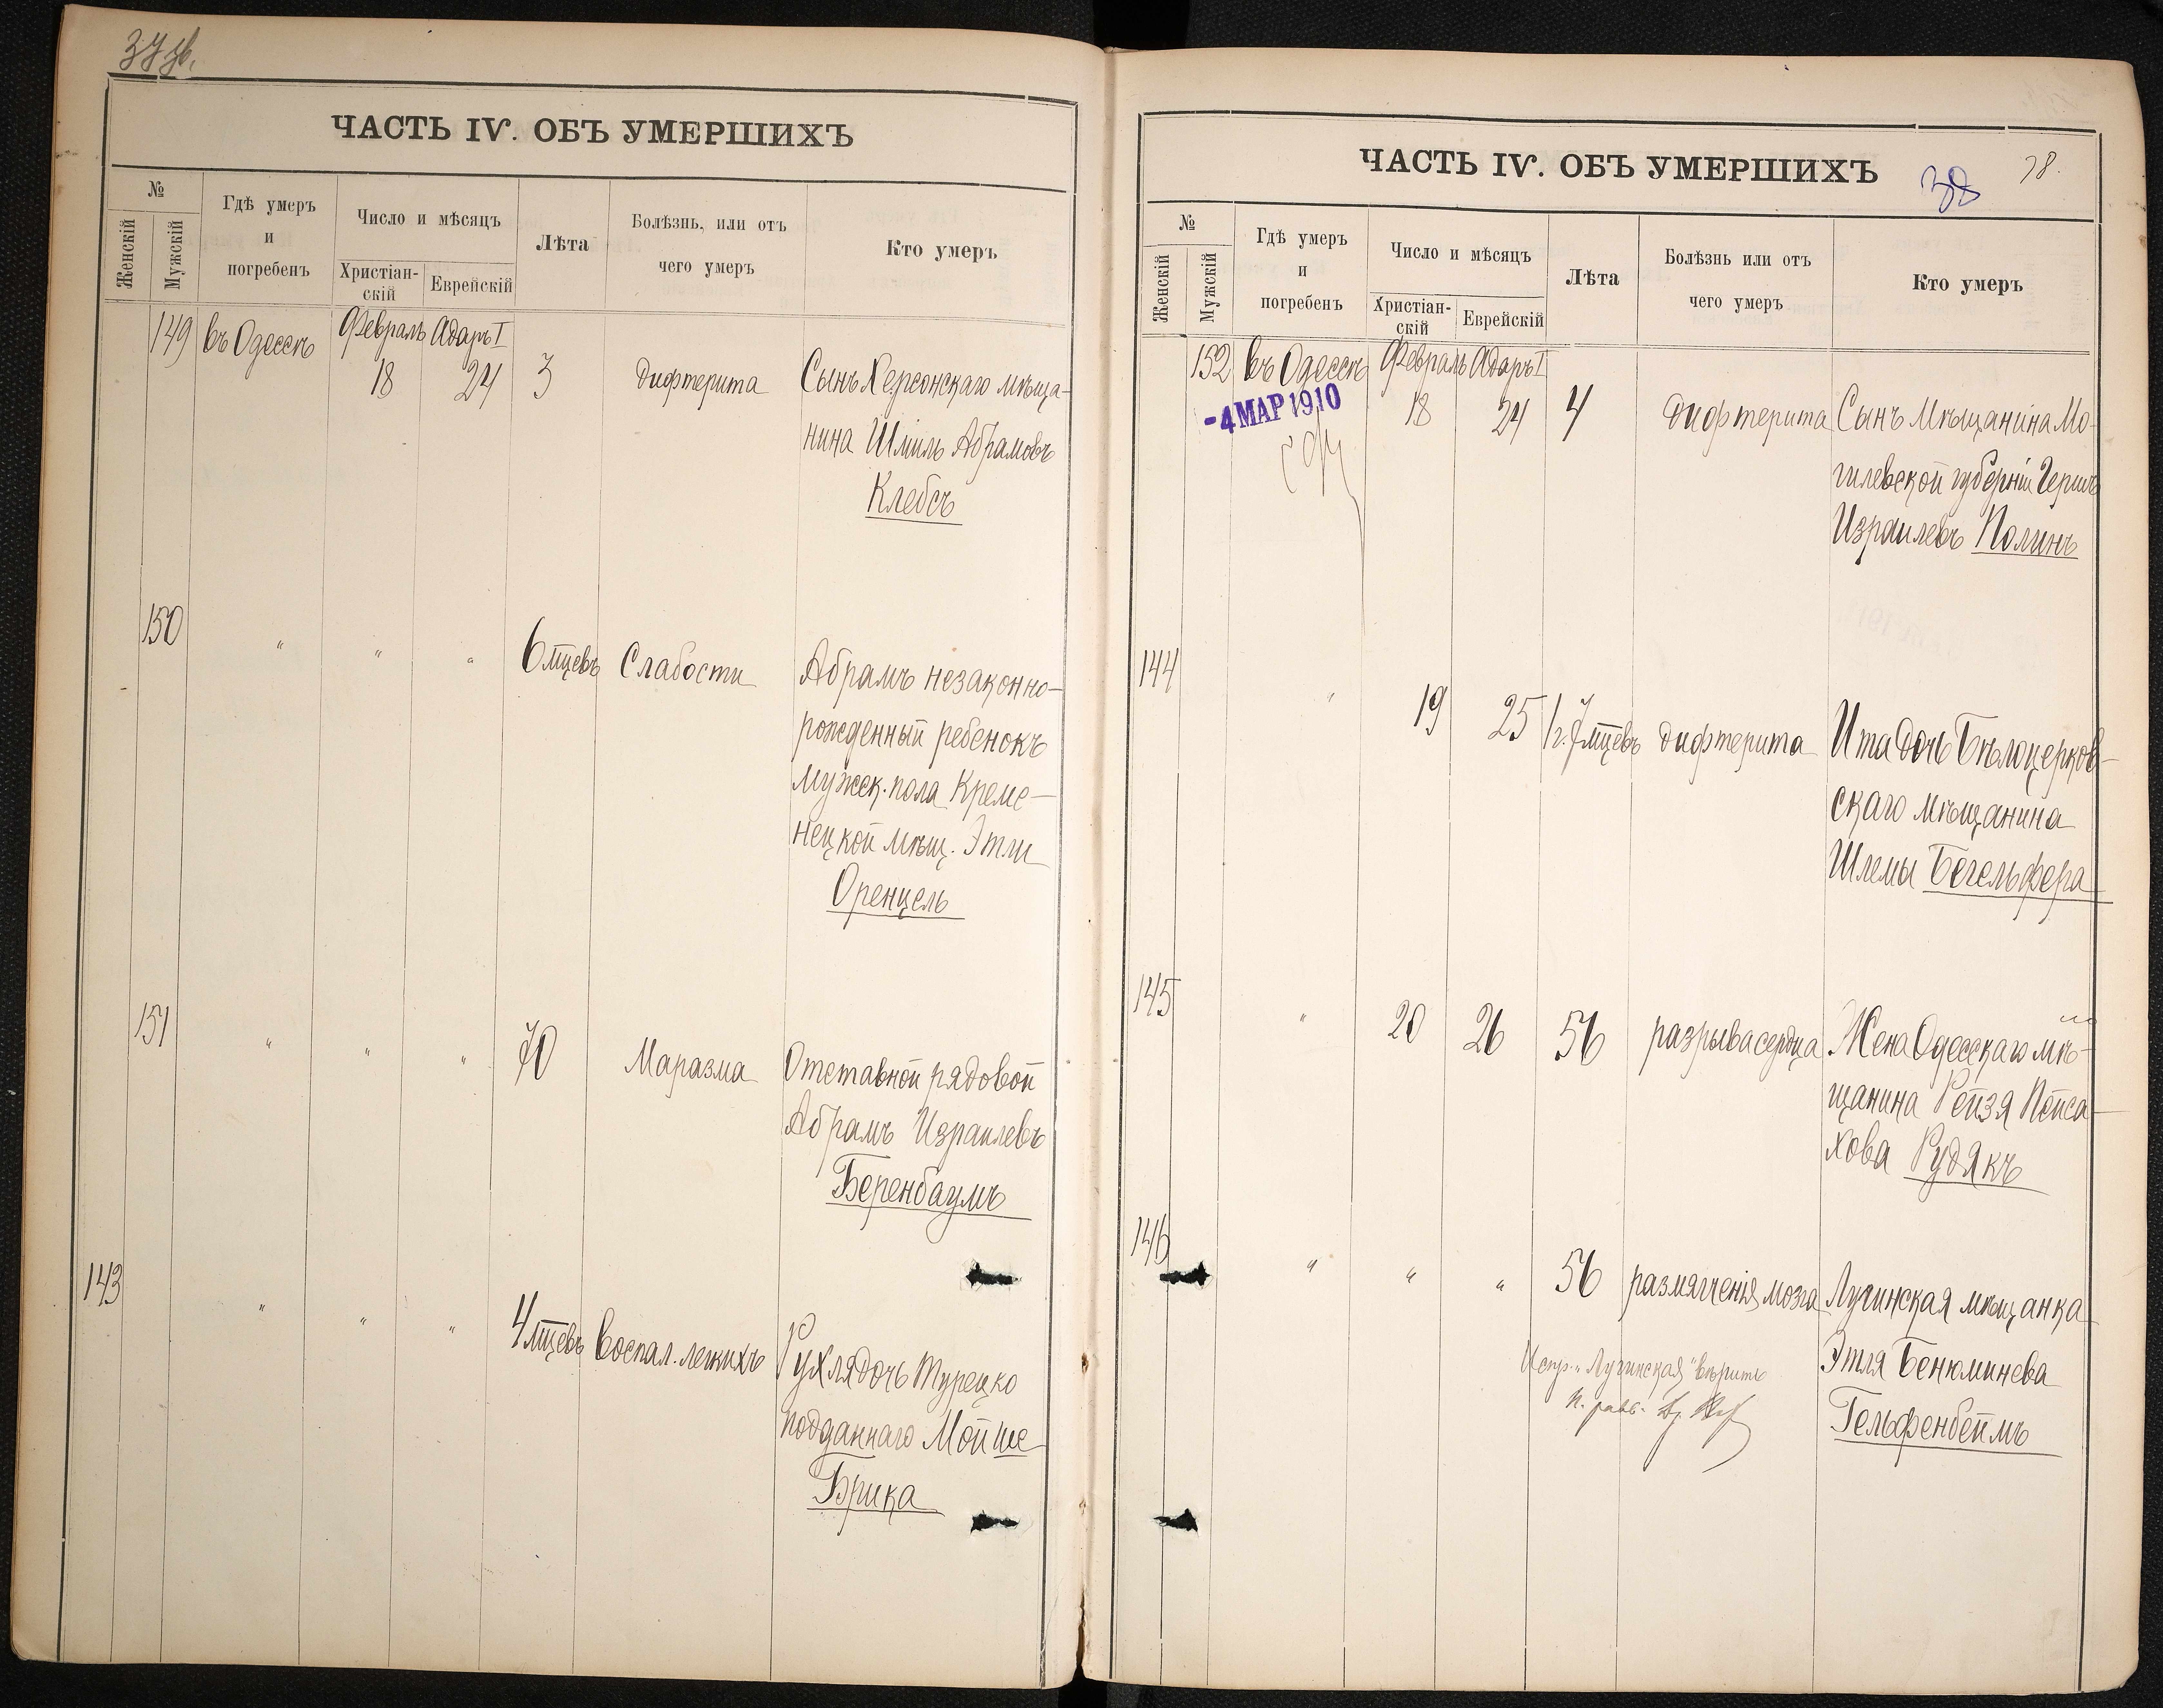 ЧАСТЬ IV. ОБЪ УМЕРШИХЪ
№
Женскій
Мужскій
Гдѣ умеръ
и
погребенъ
Число и мѣсяцъ
Христіан-
скій
Еврейскій
Лѣта
Болѣзнь, или отъ
чего умеръ
Кто умеръ
149 въ Одессѣ Февраль Адаръ I
18 24 3 дифтерита Сынъ Херсонскаго мѣща-
нина Шмиль Абрамовъ
Клебсъ
150 " " " 6 мцевъ Слабости Абрамъ незаконно-
рожденный ребенокъ
мужск. пола Креме-
нецкой мѣщ. Этли
Оренцель
151 " " " 70 Маразма Отставной рядовой
Абрамъ Израилевъ
Беренбаумъ
143 " " " 4 мцевъ Воспал. легкихъ Рухля дочь Турецко
подданнаго Мойше
Брика
ЧАСТЬ IV. ОБЪ УМЕРШИХЪ
38 38.
№
Женскій
Мужскій
Гдѣ умеръ
и
погребенъ
Число и мѣсяцъ
Христіан-
скій
Еврейскій
Лѣта
Болѣзнь или отъ
чего умеръ
Кто умеръ
152 въ Одессѣ Февраль Адаръ I
-4 МАР 1910
18 24 4 дифтерита Сынъ Мѣщанина Мо-
гилевской губерніи Гершъ
Израилевъ Полинъ
144 " 19 25 1 г. 7 мцевъ дифтерита Ита дочь Бѣлоцерков-
скаго мѣщанина
Шлемы Бегельфера
145 " 20 26 56 разрыва сердца Жена Одесскаго мѣ-
щанина Рейзя Пейса-
хова Рудякъ
146 " " " 56 размягченія мозга Лугинская мѣщанка
Этля Бенюминева
Гельфенбеймъ
Испр. "Лугинская" вѣрить